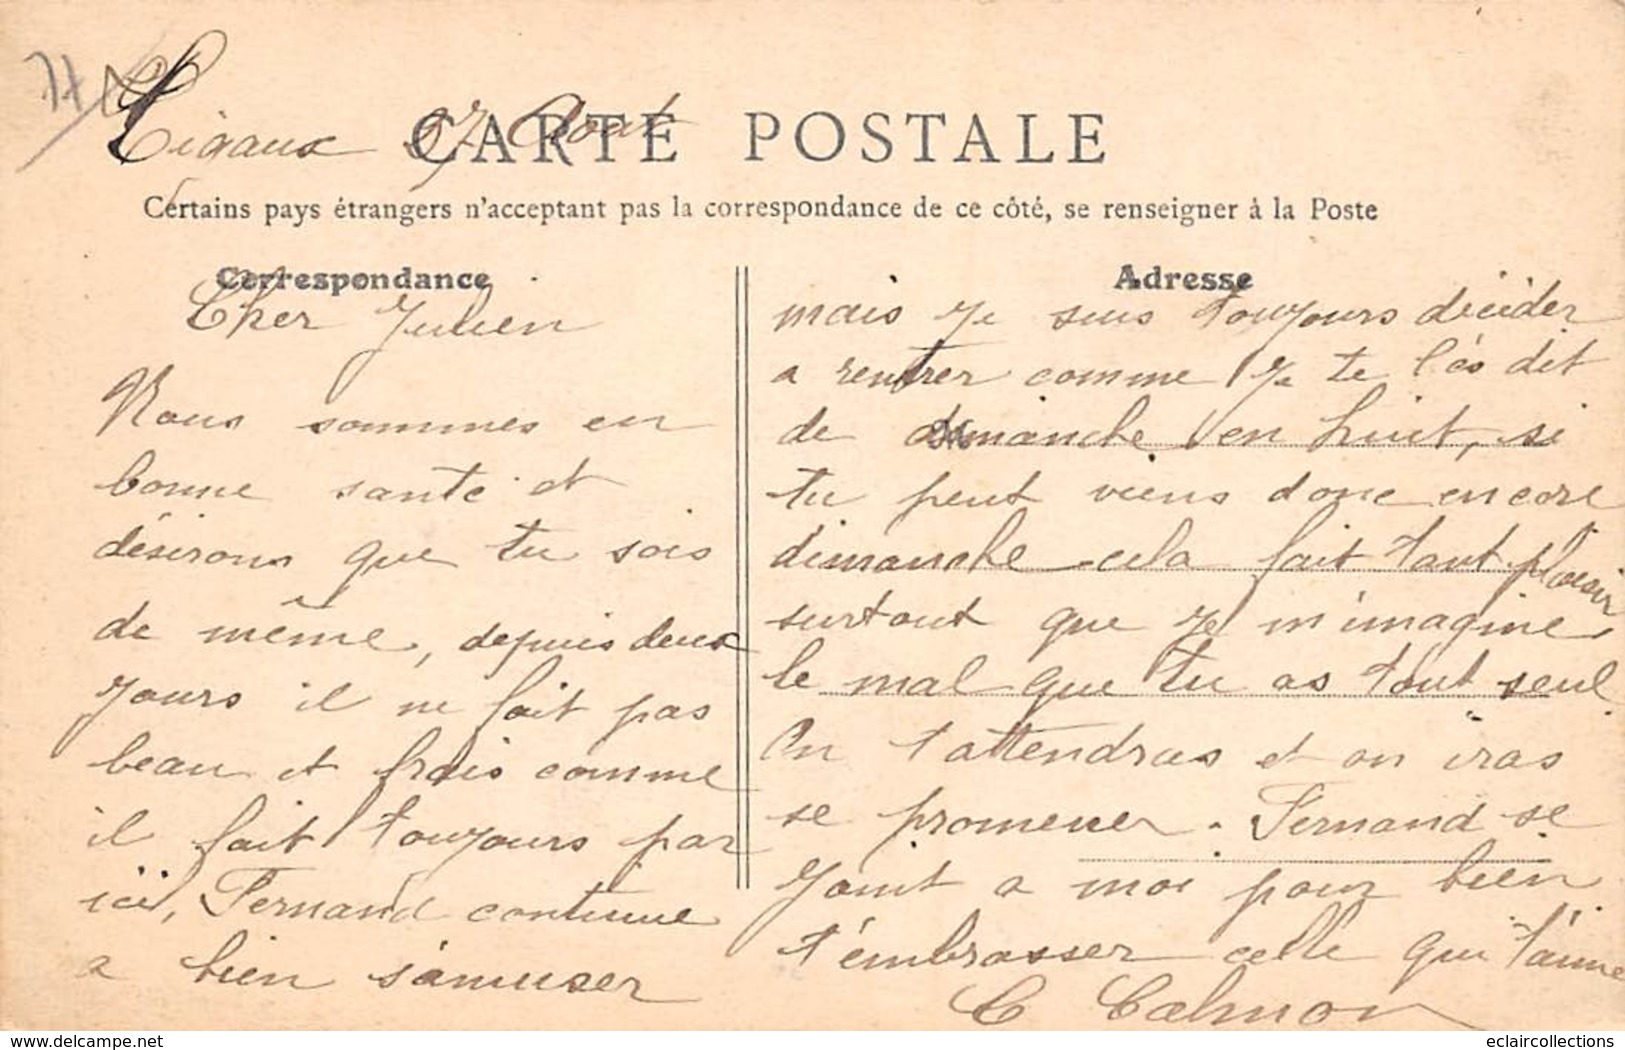 77
Ligaux 27 Aout
CARTE POSTALE
Certains pays étrangers n'acceptant pas la correspondance de ce côté, se renseigner à la Poste
Correspondance
Cher Julien
Nous sommes en
bonne santé et
désirons que tu sois
de même, depuis deux
jours il ne fait pas
beau et frais comme
il fait toujours par
ici, Fernand continue
a bien s'amuser
Adresse
mais je suis toujours décider
a rentrer comme je te l'és dit
de dimanche en huit, si
tu peut viens donc encore
dimanche cela fait tant plaisir
surtout que je m'imagine
le mal que tu as tout seul
On t'attendras et on iras
se promener. Fernand se
joint a moi pour bien
t'embrasser celle qui t'aime
C Calmon
eclaircollections